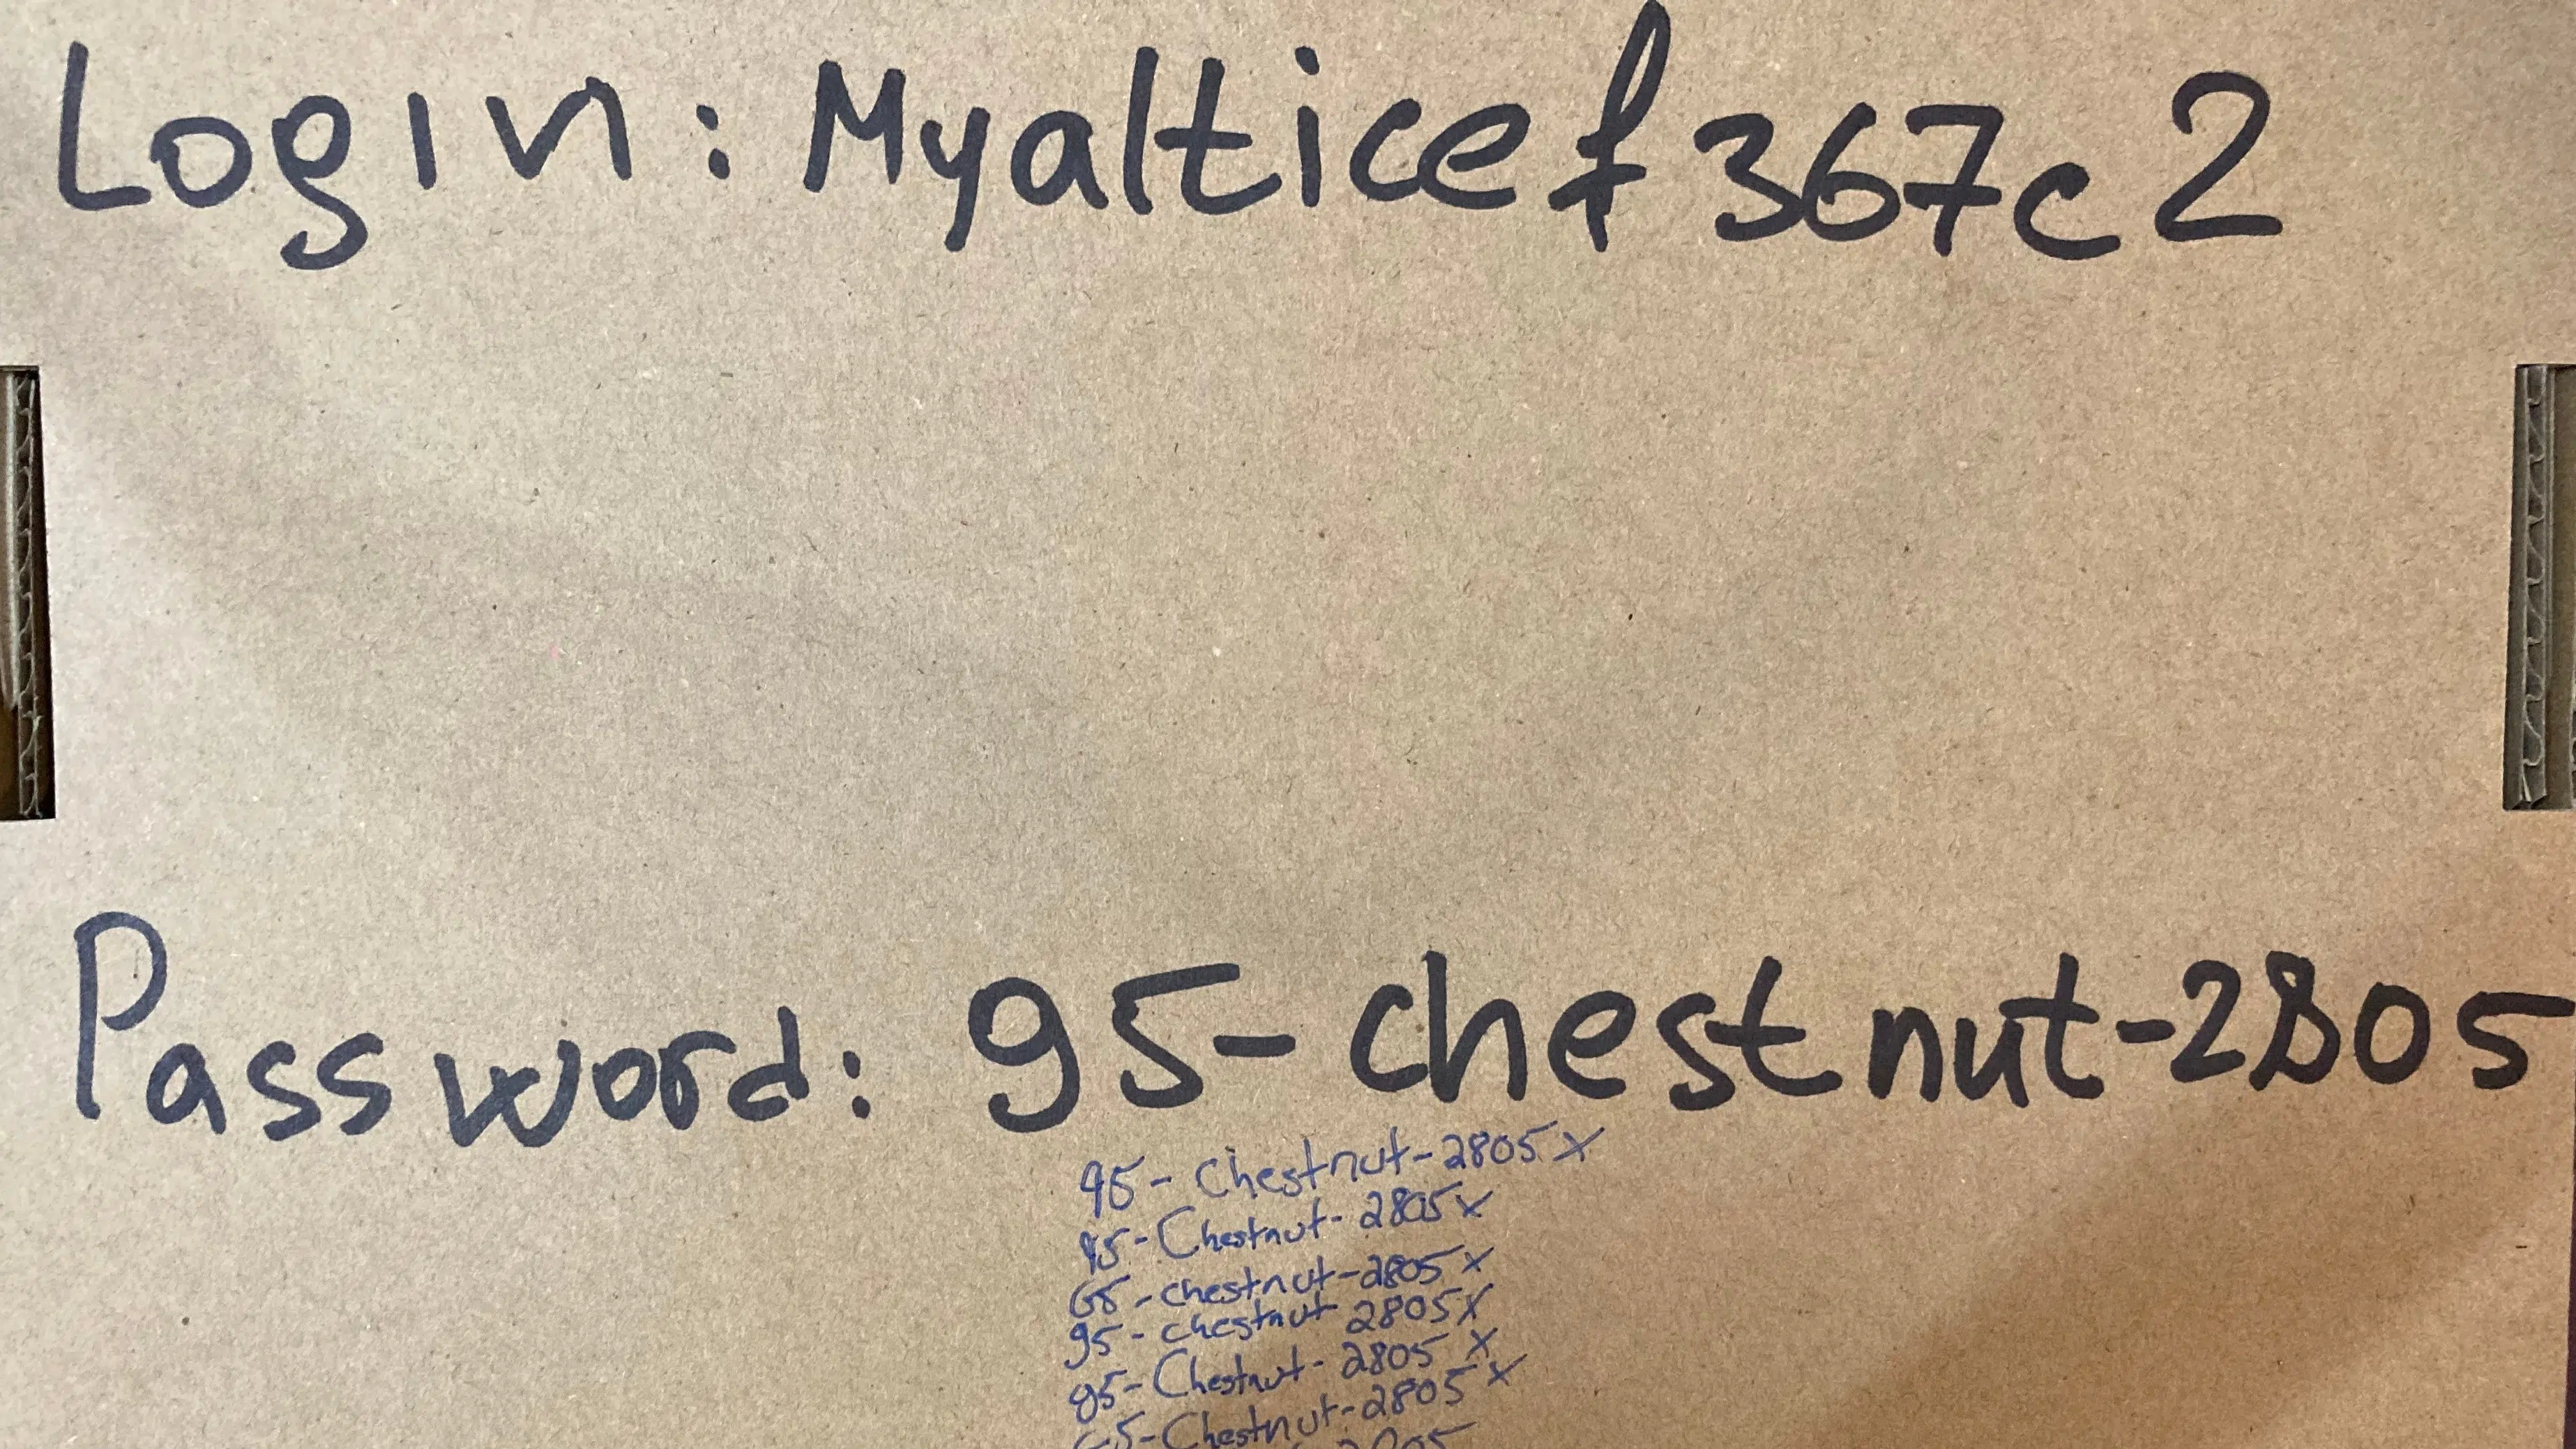 Login: Myalticef367c2
Password: 95-chestnut-2805
95-chestnut-2805 X
95-Chestnut-2805 X
G5-chestnut-2805 X
95-chestnut-2805 X
85-Chestnut-2805 X
G5-Chestnut-2805 X